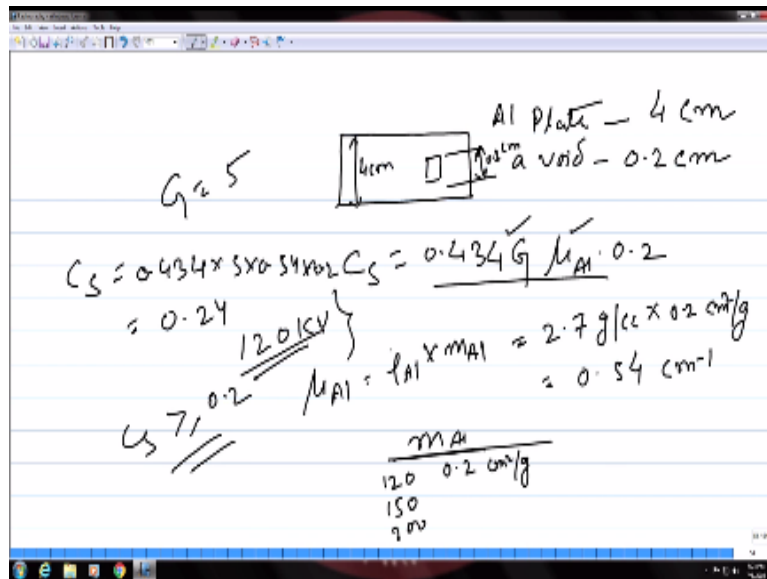 Al Plate – 4 cm
4cm
0.2cm
a void – 0.2 cm
G = 5
Cs = 0.434 G μAl . 0.2
Cs = 0.434 x 5 x 0.54 x 0.2
= 0.24
120 KV }
μAl = ρAl x mAl = 2.7 g/cc x 0.2 cm²/g
= 0.54 cm-1
Cs 7, 0.2
mAl
120 0.2 cm²/g
150
200